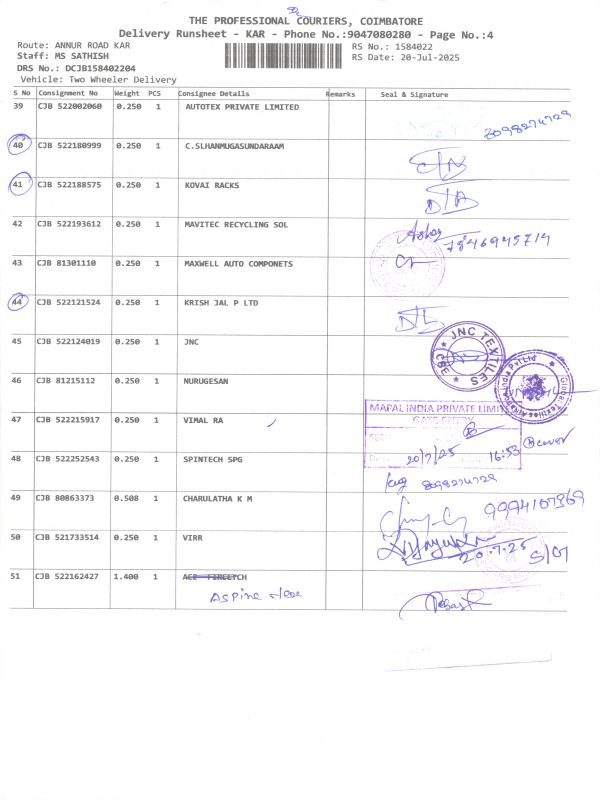 THE PROFESSIONAL COURIERS, COIMBATORE
Delivery Runsheet - KAR - Phone No.:9047080280 - Page No.:4
Route: ANNUR ROAD KAR RS No.: 1584022
Staff: MS SATHISH RS Date: 20-Jul-2025
DRS No.: DCJB158402204
Vehicle: Two Wheeler Delivery
S No Consignment No Weight PCS Consignee Details Remarks Seal & Signature
39 CJB 522002060 0.250 1 AUTOTEX PRIVATE LIMITED 8098274729
40 CJB 522180999 0.250 1 C.SLHANMUGASUNDARAAM
41 CJB 522188575 0.250 1 KOVAI RACKS
42 CJB 522193612 0.250 1 MAVITEC RECYCLING SOL 7846945714
43 CJB 81301110 0.250 1 MAXWELL AUTO COMPONETS
44 CJB 522121524 0.250 1 KRISH JAL P LTD
45 CJB 522124019 0.250 1 JNC JNC TEXTILES CBE
46 CJB 81215112 0.250 1 NURUGESAN
MAPAL INDIA PRIVATE LIMI
GATE ENTRY
47 CJB 522215917 0.250 1 VIMAL RA
20/7/25 16:53
48 CJB 522252543 0.250 1 SPINTECH SPG
8098274729
49 CJB 80863373 0.508 1 CHARULATHA K M 9994107369
50 CJB 521733514 0.250 1 VIRR 20.7.25
51 CJB 522162427 1.400 1